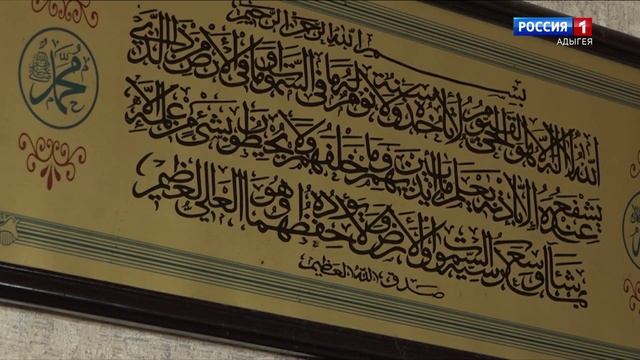 РОССИЯ 1
АДЫГЕЯ
بسم الله الرحمن الرحيم
الله لا إله إلا هو الحي القيوم لا تأخذه سنة ولا نوم له ما في السموات وما في الأرض من ذا الذي
يشفع عنده إلا بإذنه يعلم ما بين أيديهم وما خلفهم ولا يحيطون بشيء من علمه إلا
بما شاء وسع كرسيه السموات والأرض ولا يؤده حفظهما وهو العلي العظيم
صدق الله العظيم
محمد